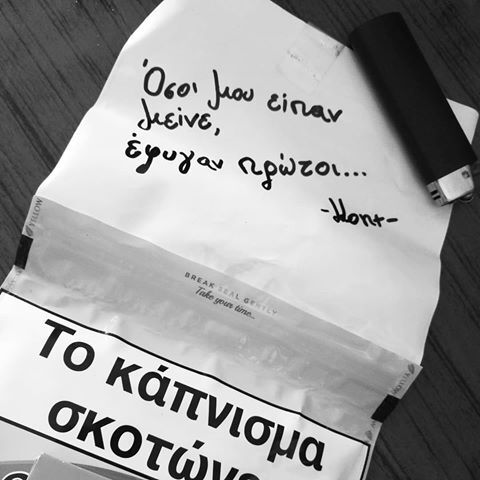 Όσοι μου είπαν
μείνε,
έφυγαν πρώτοι...
BREAK SEAL GENTLY
Take your time...
Το κάπνισμα
YELLOW